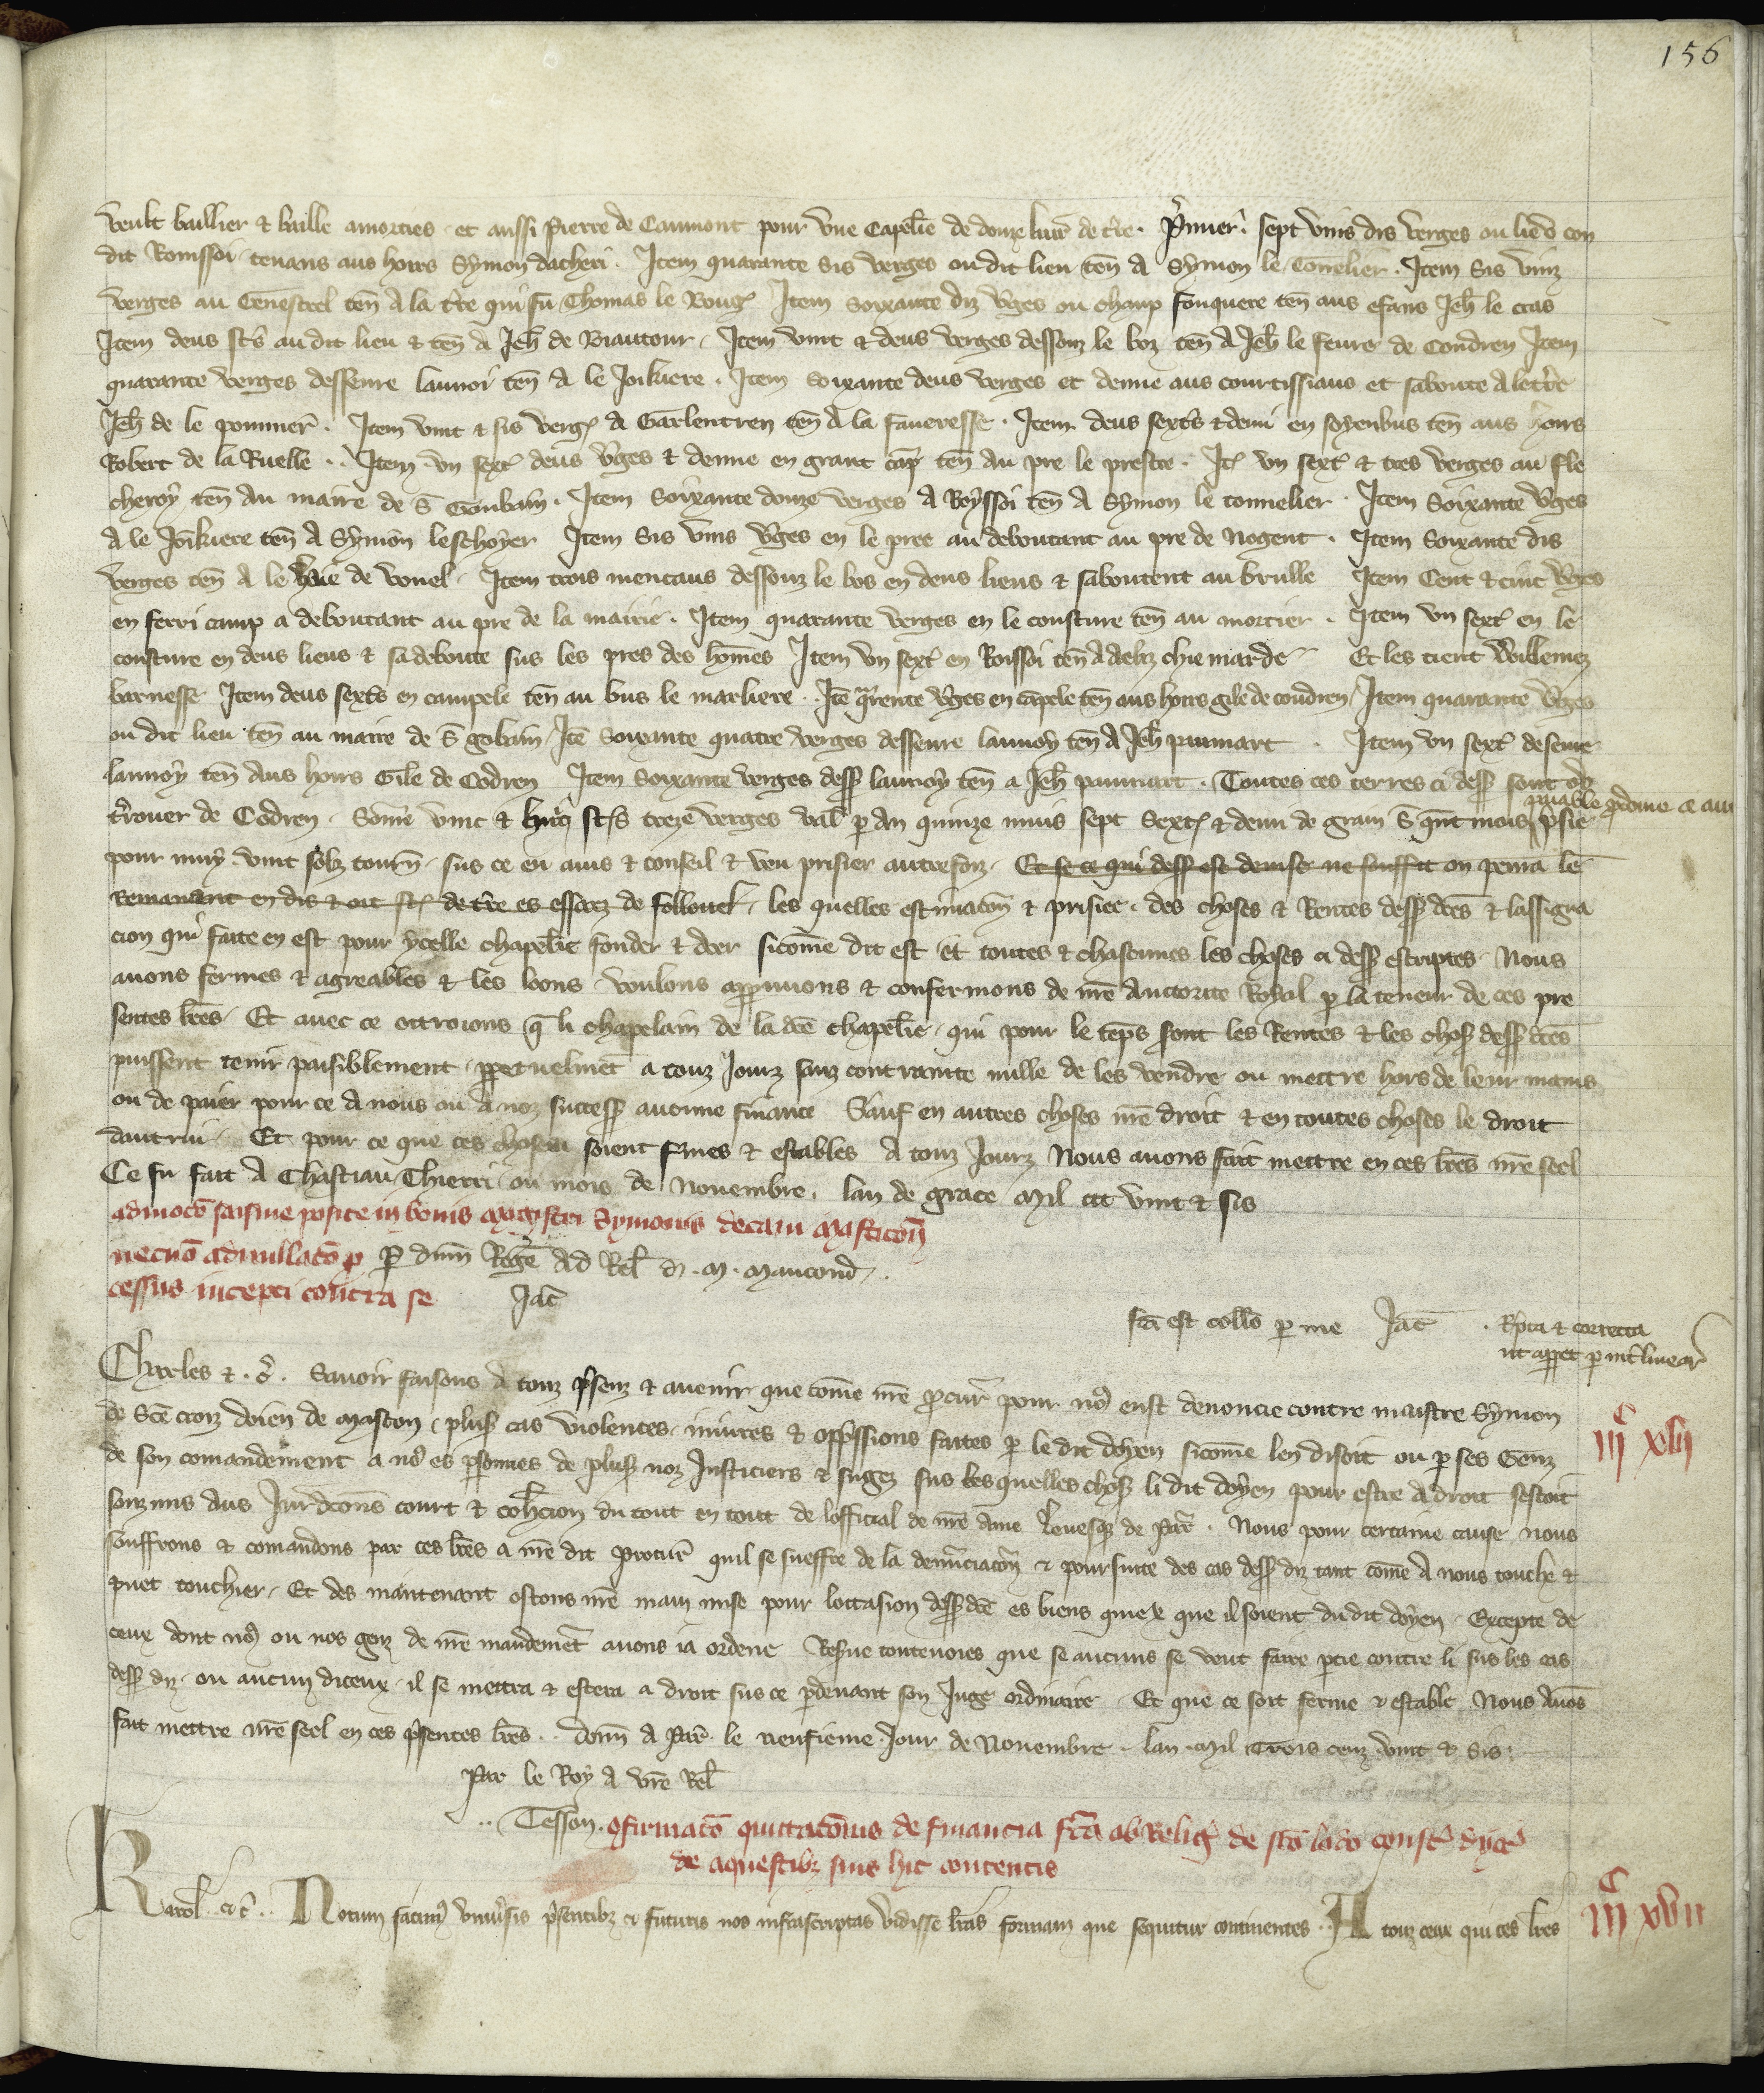 156
veult baillier & baille amorties et aussi Pierre de Caumont pour vne Capelle de douze livr de tre. Primer sept vins dis verges ou lieu con
dit Roussoi tenans aus hoirs Symon dacheri. Item quarante sis verges ou dit lieu ten A Symon le Tonnelier. Item sis vinz
verges au Cenestrel ten A la tre qui fu Thomas le Roug Item soixante diz vges ou champ fouquere ten aus efans Jeh le cras
Item deus sts au dit lieu & ten A Jeh de Biautour. Item vint & deus verges dessouz le boz ten A Jeh le feure de Condren Item
quarante verges desseure launoi ten A le Jonkiere. Item soixante deus verges et demie aus courtissiaus et saboute A le tre
Jeh de le pommer. Item vint & sis verg A Garlentren ten A la faueresse. Item deus sexts & demi en soyenbus ten aus hoirs
Robert de la Ruelle. Item vn sext deus vges & demie en grant cap ten Au pre le prestre. It vn sext & tres verges au fle
cheroy ten Au maire de S Goubain. Item soixante douze verges A Royssoi ten A Symon le tonnelier. Item soixante vges
A le Jonkiere ten A Symon leschoyer Item sis vins vges en le pree au deboutant au pre de Nogent. Item soixante dis
verges ten A le haie de vouel. Item trois mencaus dessouz le bos en deus lieus & saboutent au brulle Item Cent & cinc vges
en ferri camp a deboutant au pre de la mairie. Item quarante verges en le cousture ten au mortier. Item vn sext en le
cousture en deus lieus & sadeboute sus les pres des homes Item vn sext en Roissoi ten A chiemarde Et les tient Willemez
barnesse Item deus sexts en campele ten au bus le marliere. Ite qrente vges en capele ten aus hoirs gile de coudren Item quarante vges
ou dit lieu ten au maire de S gobain Ite soixante quatre verges desseure launoy ten A Jeh paumart. Item vn sext deseure
launoy ten Aus hoirs Gile de Codren Item soixante verges dess launoy ten a Jeh paumart. Toutes ces terres ci dess sont
trouer de Codren. Some vint & huit sts treze verges val p An quinze muis sept sext & demi de grain prisie
pour muy vint solz tourn. sus ce eu auis & conseil & veu prisier autrefoiz. Et se ce qui dess est deuise ne souffit on penra le
Remanant en dis & oit st de tre es essarz de follouel. les quelles estimacon & prisiee des choses & Rentes dess dces & lassigna
cion qui faite en est pour ycelle chapelle fonder & doer sicome dit est et toutes & chascunes les choses ci dess escriptes Nous
auons fermes & agreables & les loons voulons appruuons & confermons de nre Auctorite Royal p la teneur de ces pre
sentes lres. Et auec ce ottroions q li chapelain de la dce chapelle qui pour le teps seront les Rentes & les chos dess dces
puissent tenir paisiblement ppetuelmet a touz Jourz sanz contrainte nulle de les vendre ou mettre hors de leur mains
ou de paier pour ce A nous ou A noz success aucune finance Sauf en autres choses nre droit & en toutes choses le droit
dautrui. Et pour ce que ces choses soient fmes & estables A touz Jourz Nous auons fait mettre en ces lres nre seel
Ce fu fait A Chastiau Thierri ou mois de Nouembre. lan de grace Mil ccc vint & sis
admoco saisine posite in bonis magistri Symonis decani Masticon
necno adnullaco p p dnm Rege Ad Rel d. M. Maucond.
cessus incepti contra se Jac
fca est collo p me Jac. Rpta & correcta
ut appet p intlinear
Charles &. c. Sauoir faisons A touz psenz & auenir que come nre pcur pour nos eust denoncie contre maistre Symon
de Sce croiz doien de Mascon plus cas violences iniures & oppssions faites p le dit doyen sicome len disoit ou p ses Genz
de son comandement a nos es psonnes de plus noz Justiciers & sugez sus lesquelles chos li dit doyen pour ester A droit sestoit
souzmis Aus Jurdicons court & cohercion du tout en tout de lofficial de nre Ame levesq de Par. Nous pour certaine cause nous
souffrons & comandons par ces lres a nre dit Procur quil se sueffre de la denunciacon & poursuite des cas dess diz tant come A nous touche &
puet touchier. Et des maintenant ostons nre main mise pour loccasion dess dce es biens quiex que il soient dudit doyen. Excepte de
ceux dont nos ou nos genz de nre mandemet auons ia ordene Resue toutevoies que se aucuns se veut faire ptie contre li sus les cas
dess diz ou aucun diceux il se mettra & estera a droit sus ce pdeuant son Juge ordinaire Et que ce soit ferme & estable Nous Auos
fait mettre nre seel en ces psentes lres. donn A Par le neufieme Jour de Nouembre. lan Mil trois cenz vint & sis.
Par le Roy A vre Rel
Tesson. 9firmaco quittaconis de financia fca ab Relig de sco lado const dyoc
de aquestibz suis hic contentis
Karol &c. Notum facim vniusis psentibz & futuris nos infrascriptas vidisse lras formam que sequitur continentes. A touz ceux qui ces lres
iiic xlvi
iiic xlvii